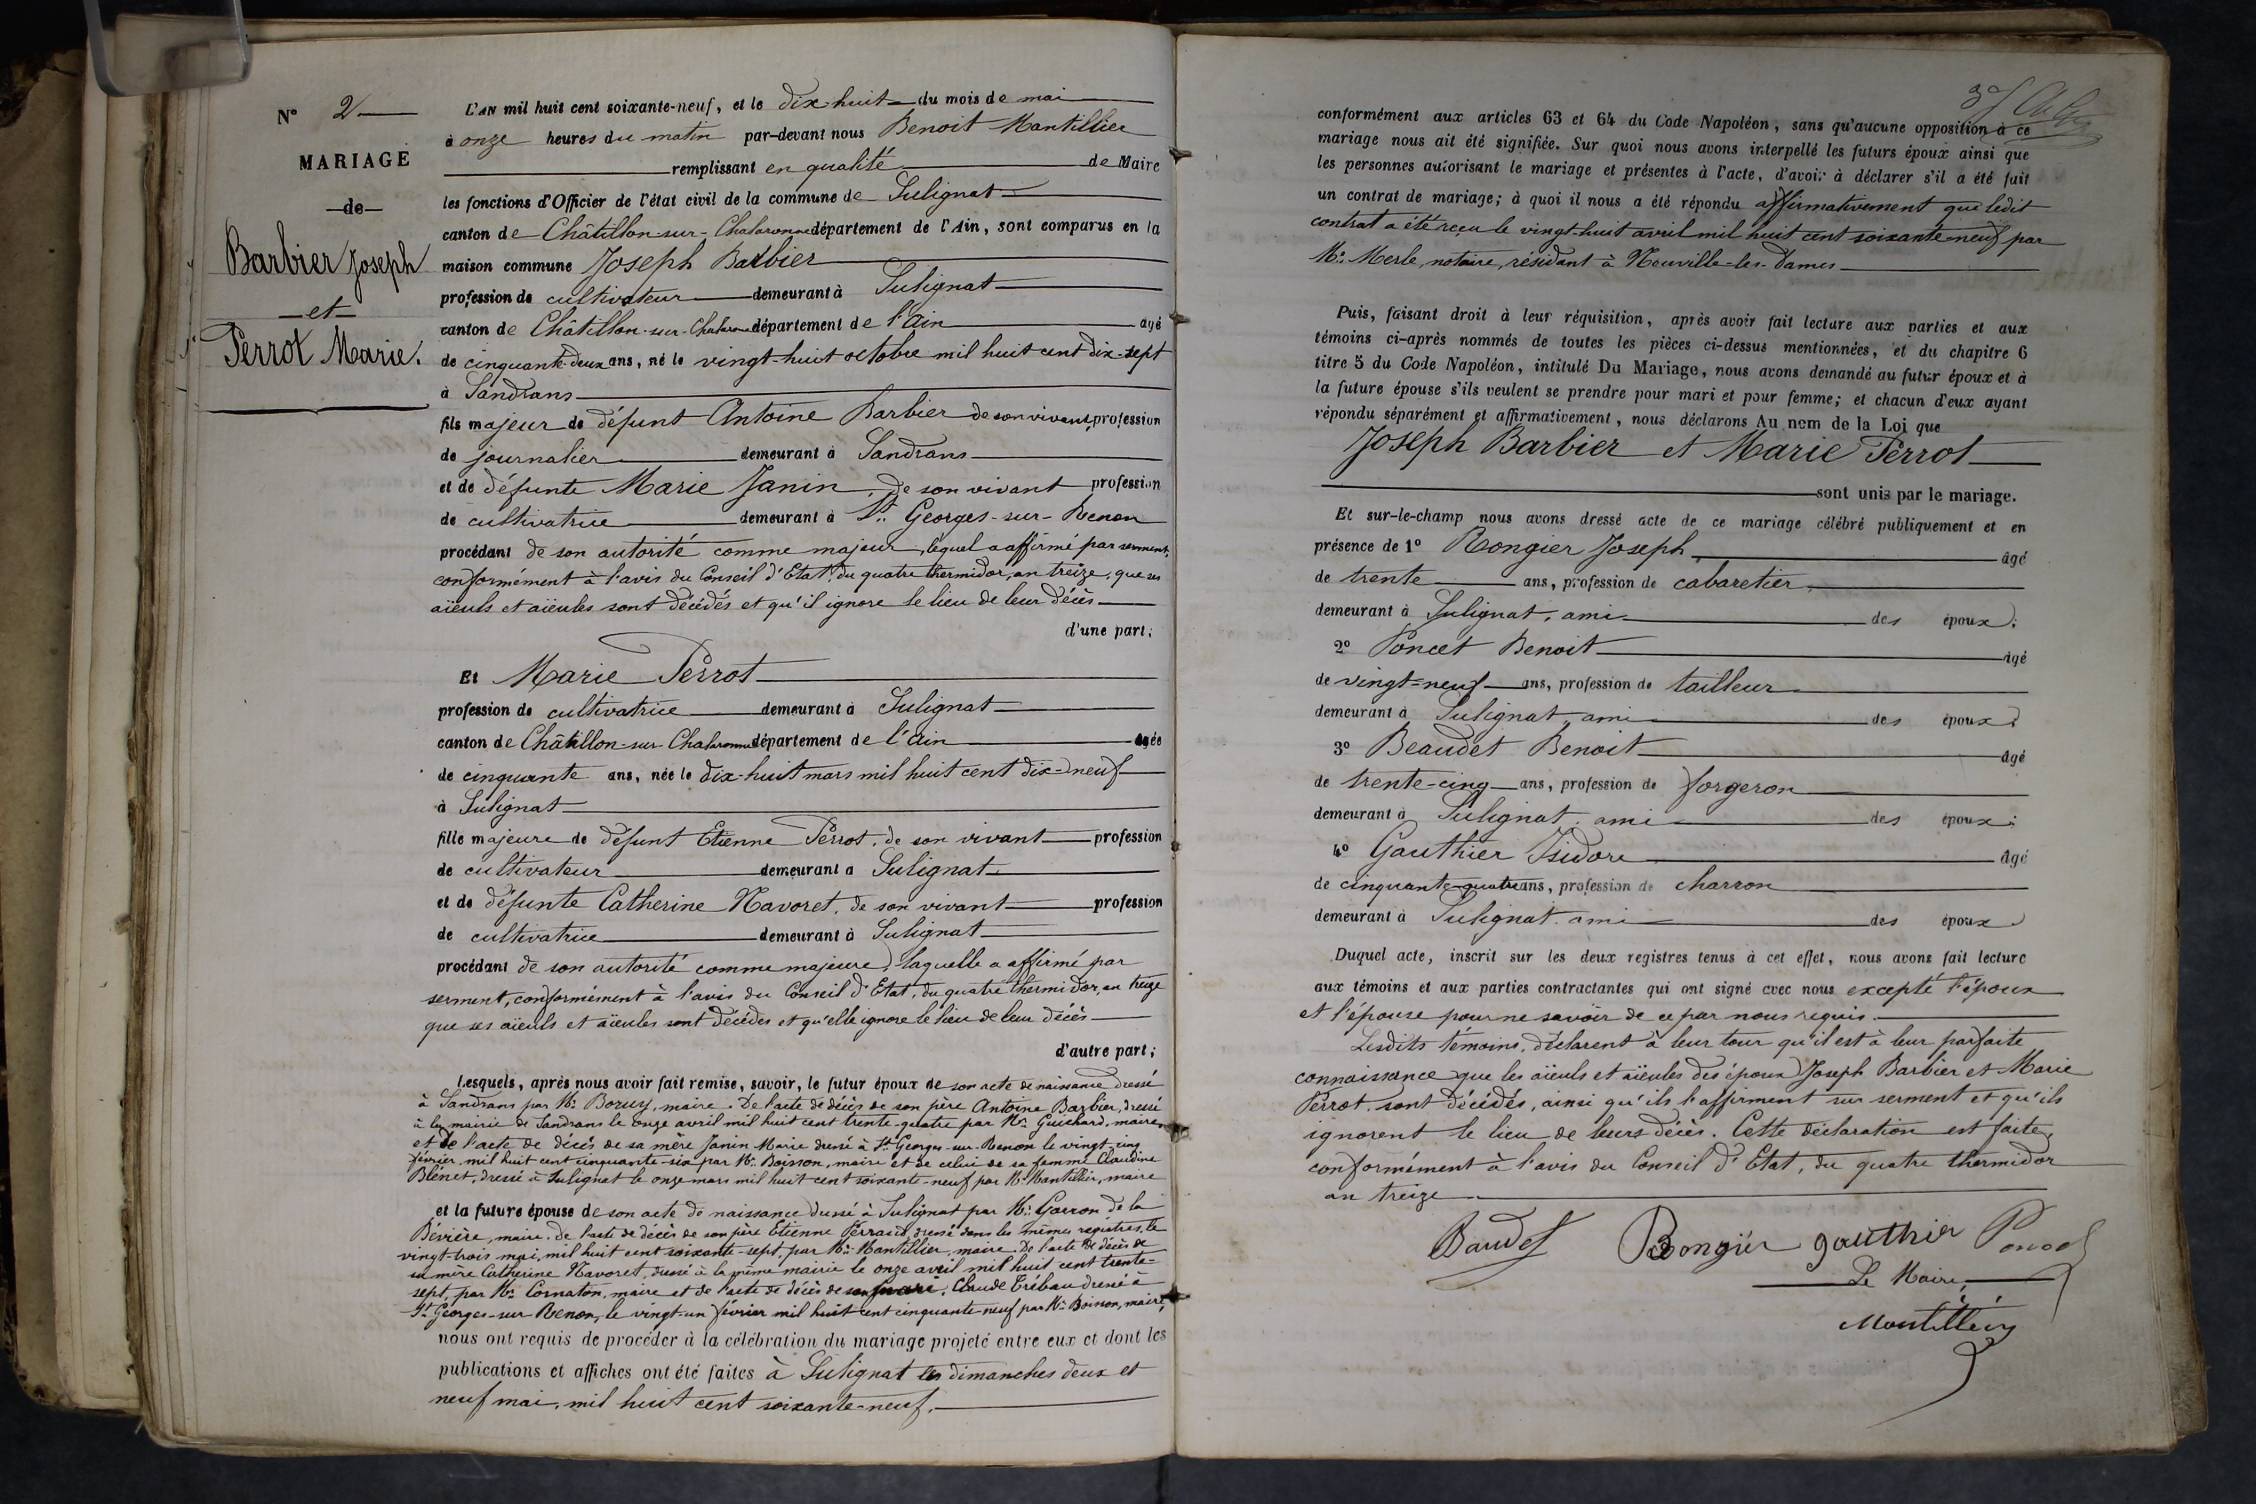 N° 2
MARIAGE
de
Barbier Joseph
et
Perrot Marie.
L'AN mil huit cent soixante-neuf, et le dix-huit du mois de mai
à onze heures du matin par-devant nous Benoit Mantillier
remplissant en qualité de Maire
les fonctions d'Officier de l'état civil de la commune de Sulignat
canton de Châtillon-sur-Chalaronne département de l'Ain, sont comparus en la
maison commune Joseph Barbier
profession de cultivateur demeurant à Sulignat
canton de Châtillon-sur-Chalaronne département de l'Ain âgé
de cinquante-deux ans, né le vingt-huit octobre mil huit cent dix-sept
à Sandrans
fils majeur de défunt Antoine Barbier de son vivant, profession
de journalier demeurant à Sandrans
et de défunte Marie Janin, de son vivant profession
de cultivatrice demeurant à St. Georges-sur-Renon
procédant de son autorité comme majeur, lequel a affirmé par serment,
conformément à l'avis du Conseil d'Etat, du quatre thermidor, an treize, que ses
aïeuls et aïeules sont décédés et qu'il ignore le lieu de leur décès
d'une part;
Et Marie Perrot
profession de cultivatrice demeurant à Sulignat
canton de Châtillon-sur-Chalaronne département de l'Ain agée
de cinquante ans, née le dix-huit mars mil huit cent dix-neuf
à Sulignat
fille majeure de défunt Etienne Perrot, de son vivant profession
de cultivateur demeurant a Sulignat
et de défunte Catherine Navoret, de son vivant profession
de cultivatrice demeurant à Sulignat
procédant de son autorité comme majeure, laquelle a affirmé par
serment, conformément à l'avis du Conseil d'Etat, du quatre thermidor, an treize
que ses aïeuls et aïeules sont décédés et qu'elle ignore le lieu de leur décès
d'autre part;
Lesquels, après nous avoir fait remise, savoir, le futur époux de son acte de naissance dressé
à Sandrans par Mr. Bozuy, maire. De l'acte de décès de son père Antoine Barbier, dressé
à la mairie de Sandrans le onze avril mil huit cent trente-quatre par Mr. Guichard, maire
et de l'acte de décès de sa mère Janin Marie dressé à St. Georges-sur-Renon le vingt-cinq
février mil huit cent cinquante-six par Mr. Boisson, maire et de celui de sa femme Claudine
Blénet, dressé à Sulignat le onze mars mil huit cent soixante-neuf par Mr. Mantillier, maire
et la future épouse de son acte de naissance dressé à Sulignat par Mr. Garron de la
Bévière, maire. De l'acte de décès de son père Etienne Perraud, dressé dans les mêmes registres, le
vingt-trois mai, mil huit cent soixante-sept, par Mr. Mantillier, maire. De l'acte de décès de
sa mère Catherine Navoret, dressé à la même mairie le onze avril mil huit cent trente-
sept, par Mr. Cornaton, maire et de l'acte de décès de son mari, Claude Trébau dressé à
St. Georges-sur-Renon, le vingt-un février mil huit cent cinquante-neuf par Mr. Boisson, maire,
nous ont requis de procéder à la célébration du mariage projeté entre eux et dont les
publications et affiches ont été faites à Sulignat les dimanches deux et
neuf mai, mil huit cent soixante-neuf.
37
conformément aux articles 63 et 64 du Code Napoléon, sans qu'aucune opposition à ce
mariage nous ait été signifiée. Sur quoi nous avons interpellé les futurs époux ainsi que
les personnes autorisant le mariage et présentes à l'acte, d'avoir à déclarer s'il a été fait
un contrat de mariage; à quoi il nous a été répondu affirmativement que ledit
contrat a été reçu le vingt-huit avril mil huit cent soixante-neuf par
Me. Merle, notaire, résidant à Neuville-les-Dames
Puis, faisant droit à leur réquisition, après avoir fait lecture aux parties et aux
témoins ci-après nommés de toutes les pièces ci-dessus mentionnées, et du chapitre 6
titre 5 du Code Napoléon, intitulé Du Mariage, nous avons demandé au futur époux et à
la future épouse s'ils veulent se prendre pour mari et pour femme; et chacun d'eux ayant
répondu séparément et affirmativement, nous déclarons Au nom de la Loi que
Joseph Barbier et Marie Perrot
sont unis par le mariage.
Et sur-le-champ nous avons dressé acte de ce mariage célébré publiquement et en
présence de 1° Rongier Joseph âgé
de trente ans, profession de cabaretier
demeurant à Sulignat, ami des époux;
2° Poncet Benoit âgé
de vingt-neuf ans, profession de tailleur
demeurant à Sulignat, ami des époux;
3° Beaudet Benoit âgé
de trente-cinq ans, profession de forgeron
demeurant à Sulignat, ami des époux;
4° Gauthier Isidore âgé
de cinquante-quatre ans, profession de charron
demeurant à Sulignat, ami des époux
Duquel acte, inscrit sur les deux registres tenus à cet effet, nous avons fait lecture
aux témoins et aux parties contractantes qui ont signé avec nous excepté l'époux
et l'épouse pour ne savoir de ce par nous requis.
Lesdits témoins, déclarent à leur tour qu'il est à leur parfaite
connaissance que les aïeuls et aïeules des époux Joseph Barbier et Marie
Perrot, sont décédés, ainsi qu'ils l'affirment sur serment et qu'ils
ignorent le lieu de leurs décès. Cette déclaration est faite,
conformément à l'avis du Conseil d'Etat, du quatre thermidor
an treize
Baudet Rongier gauthier Poncet
Le Maire,
Mantillier